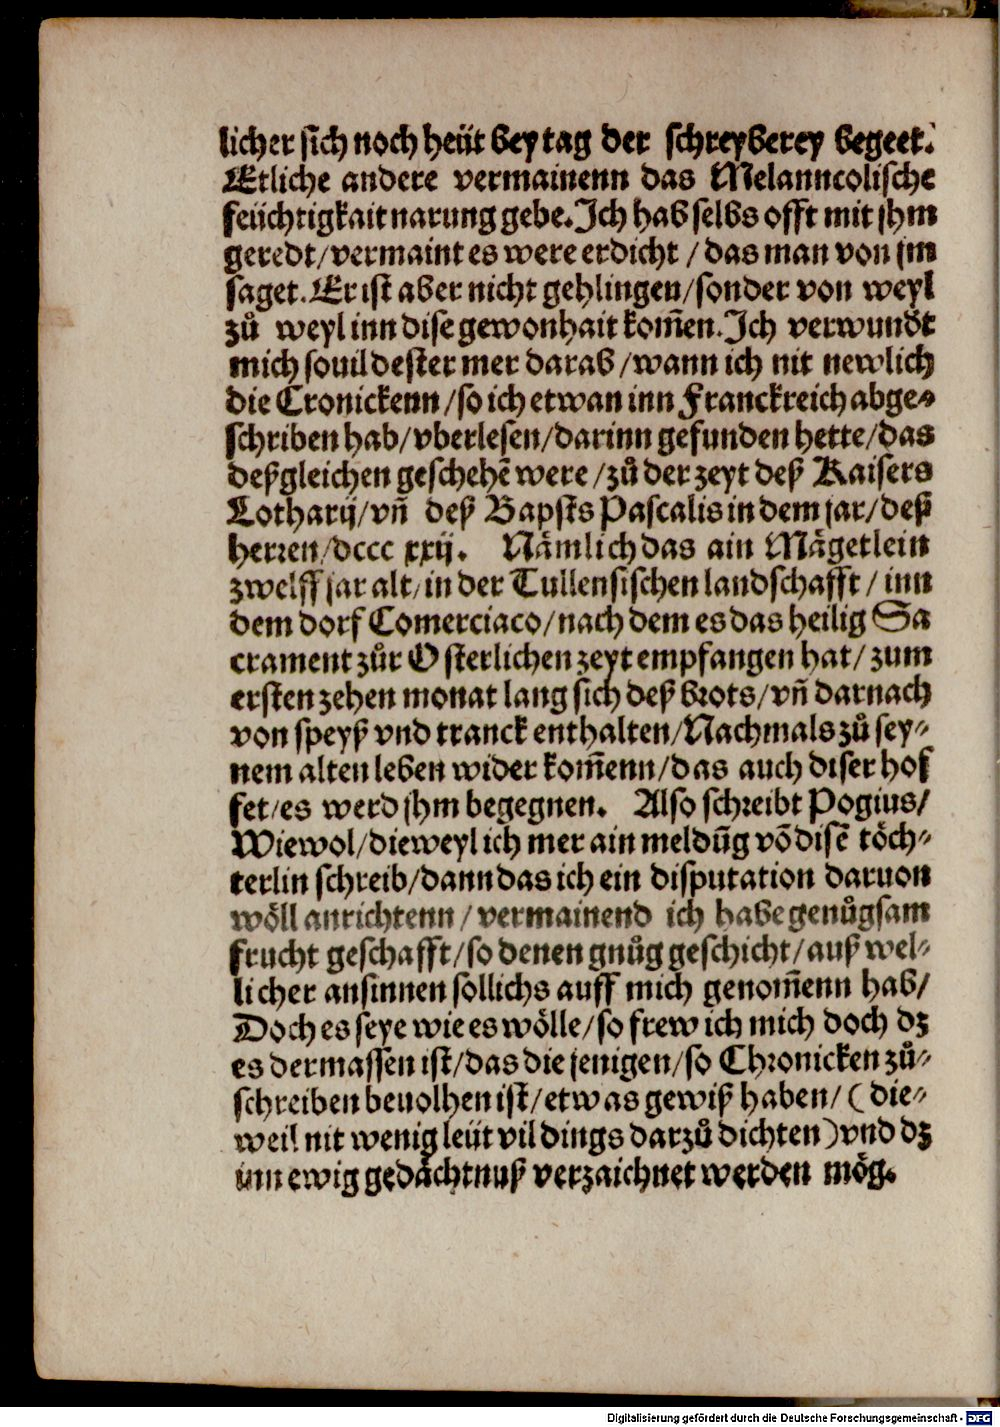 licher sich noch heüt bey tag der schreyberey begeet.
Etliche andere vermainenn das Melanncolische
feüchtigkait narung gebe. Ich hab selbs offt mit jhm
geredt/ vermaint es were erdicht / das man von jm
saget. Er ist aber nicht gehlingen/ sonder von weyl
zů weyl inn dise gewonhait kom̃en. Ich verwundt
mich souil dester mer darab / wann ich nit newlich
die Cronickenn / so ich etwan inn Franckreich abge⸗
schriben hab/ vberlesen/ darinn gefunden hette/ das
deßgleichen geschehẽ were / zů der zeyt deß Kaisers
Lotharij/ vñ deß Bapsts Pascalis in dem jar/ deß
herren/ dccc xxij. Nämlich das ain Mägetlein
zwelff jar alt/ in der Tullensischen landschafft / inn
dem dorf Comerciaco/ nach dem es das heilig Sa
crament zůr Osterlichen zeyt empfangen hat/ zum
ersten zehen monat lang sich deß brots/ vñ darnach
von speyß vnd tranck enthalten/ Nachmals zů sey⸗
nem alten leben wider kom̃enn/ das auch diser hof
fet/ es werd jhm begegnen. Also schreibt Pogius/
Wiewol/ dieweyl ich mer ain meldũg võ disẽ töch⸗
terlin schreib/ dann das ich ein disputation daruon
wöll anrichtenn / vermainend ich habe genůgsam
frucht geschafft/ so denen gnůg geschicht/ auß wel⸗
licher ansinnen sollichs auff mich genom̃enn hab/
Doch es seye wie es wölle/ so frew ich mich doch dz
es dermassen ist/ das die jenigen/ so Chronicken zů⸗
schreiben beuolhen ist/ etwas gewiß haben/ ( die⸗
weil nit wenig leüt vil dings darzů dichten) vnd dz
inn ewig gedächtnuß verzaichnet werden mög.
Digitalisierung gefördert durch die Deutsche Forschungsgemeinschaft - DFG